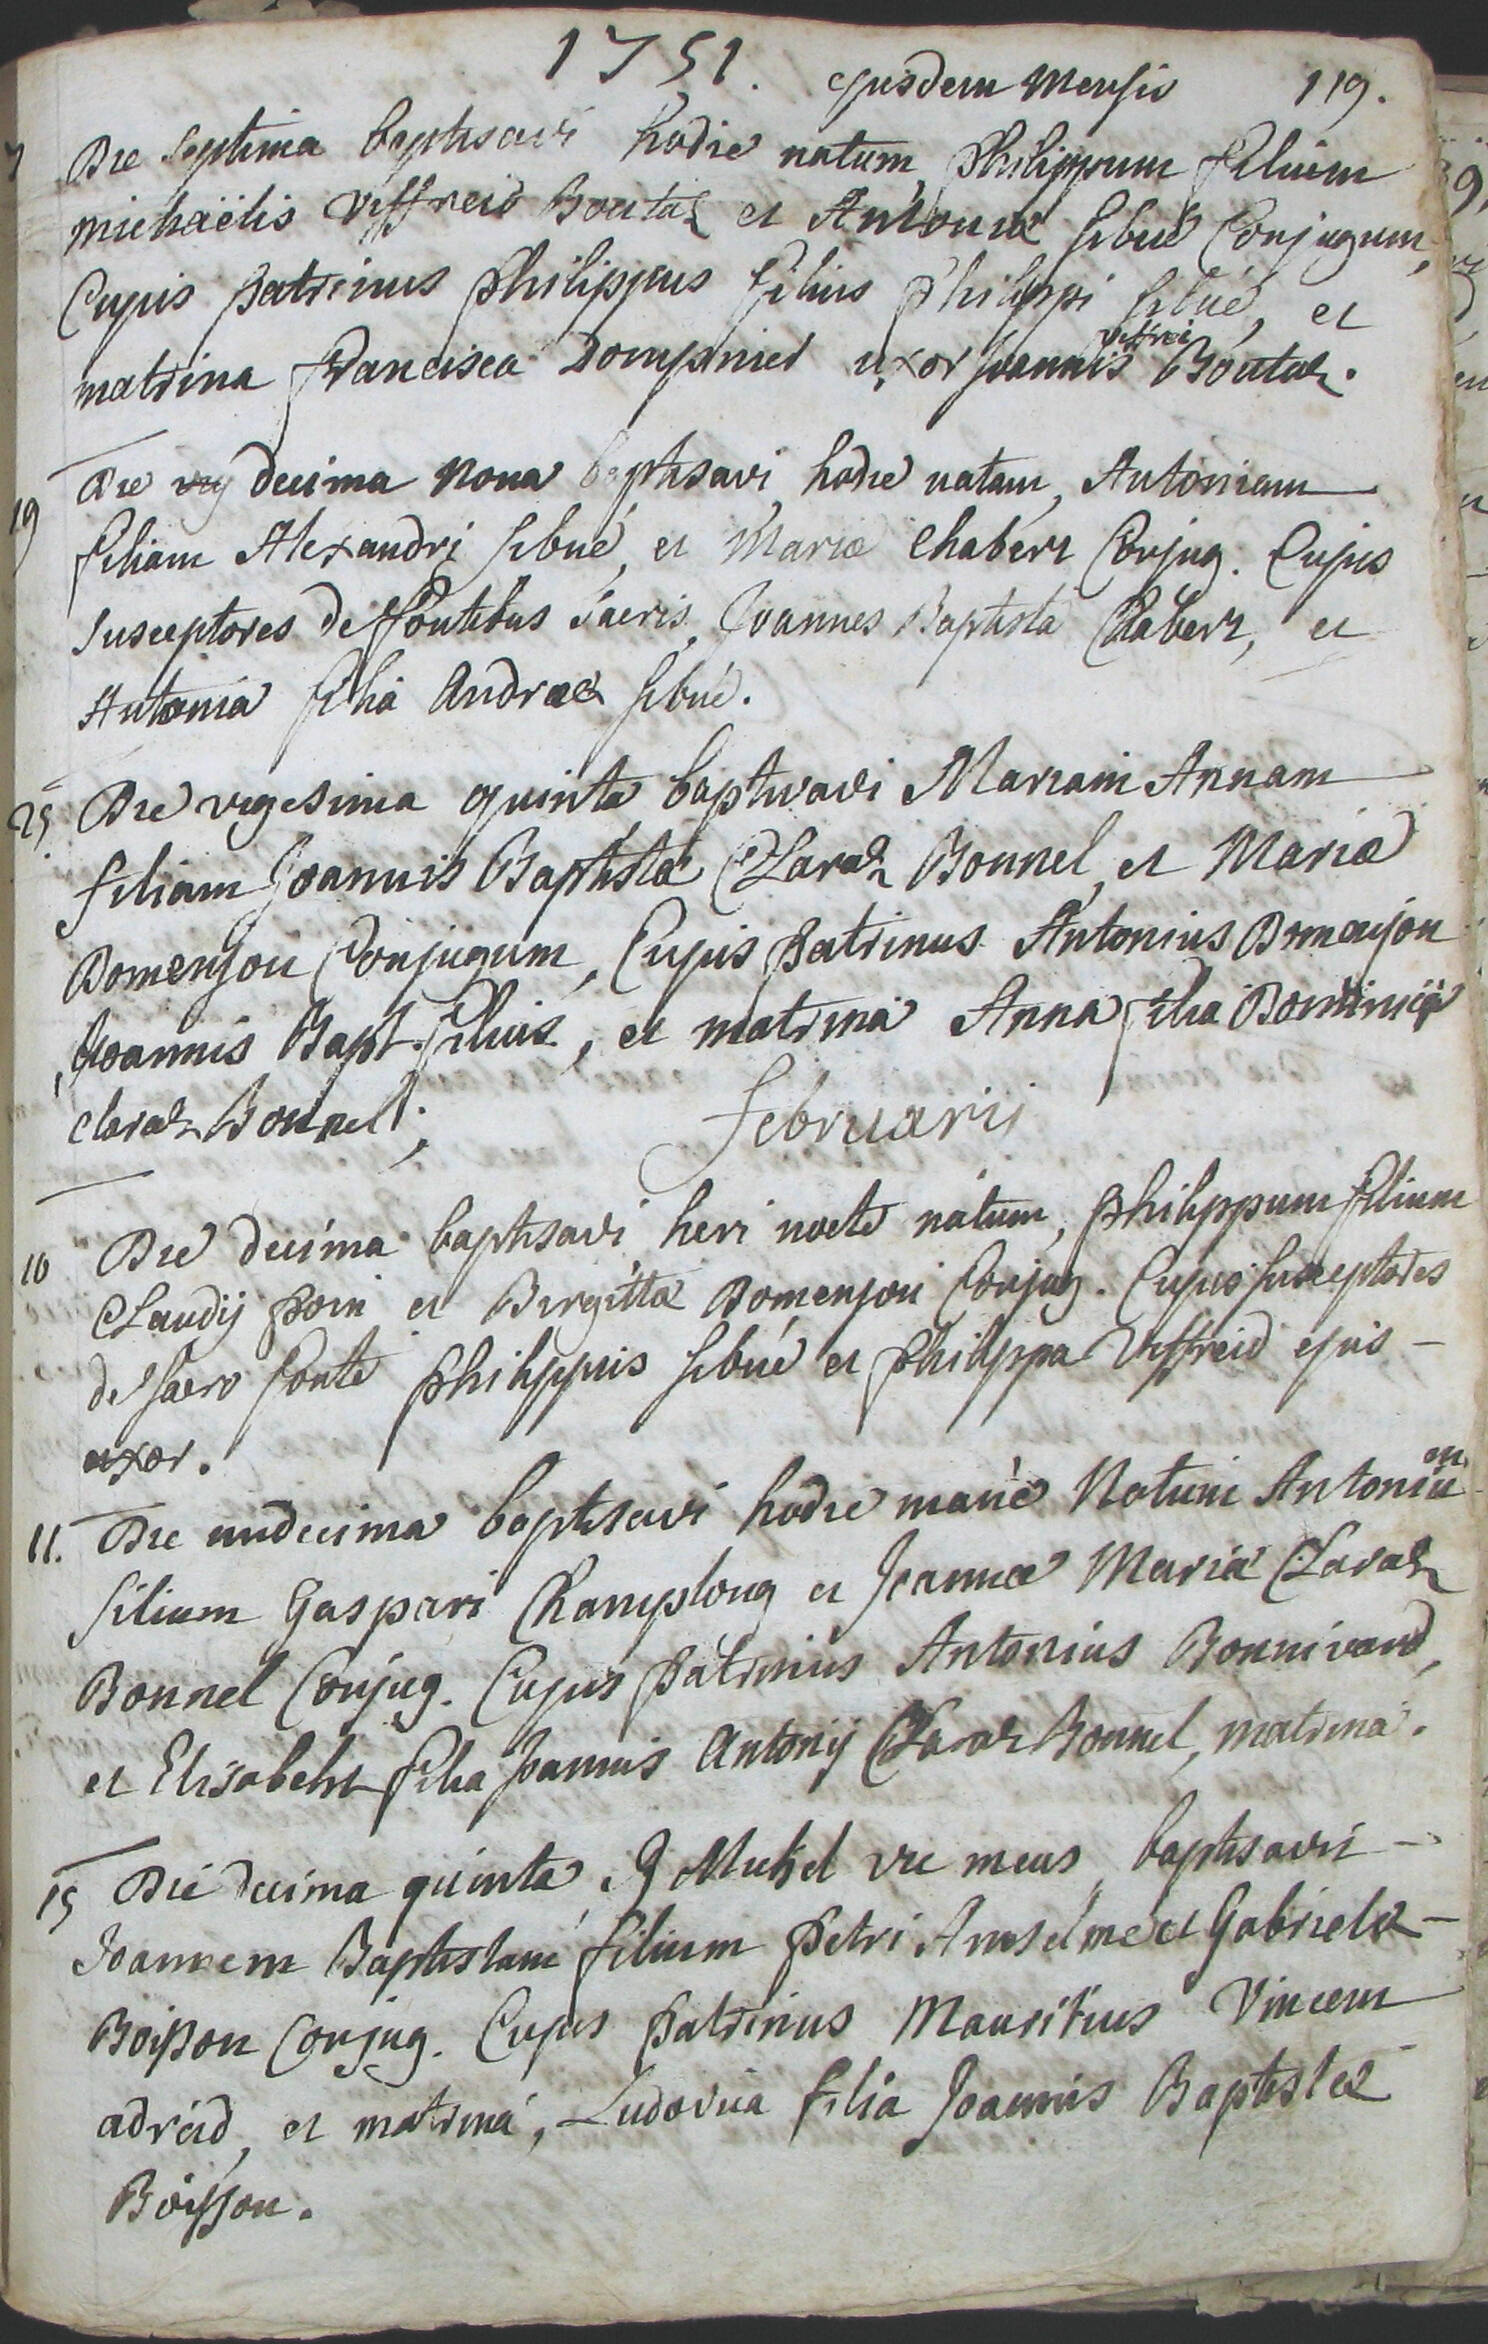 1751. ejusdem Mensis 119.
7 Die septima baptisavi hodie natum philippum filium
michaëlis Viffreid Boutaz et Antoniæ sibué Conjugum,
Cujus patrinus philippus filius philippi sibué, et
matrina francisca Dompnied uxor joannis viffrei Boutaz.
19 Die decima nona baptisavi hodie natam, Antoniam
filiam Alexandri sibué, et Mariæ Chabert Conjug. Cujus
susceptores de ffontibus sacris, Joannes Baptista Chabert, et
Antonia filia Andreæ sibué.
25 Die vigesima quinta baptisavi Mariam Annam
filiam Joannis Baptistæ Claraz Bonnel, et Mariæ
Domenjon Conjugum, Cujus patrinus Antonius Domenjon
Joannis Bapt. filius, et matrina Anna filia Dominici
claraz Bonnel;
februarii
10 Die decima baptisavi heri nocte natum, philippum filium
Claudij poin et Birgittæ Domenjon Conjug. Cujus susceptores
de sacro fonte philippus sibué et philippa Viffreid ejus -
uxor.
11. Die undecima baptisavi hodie manè Natum Antonium
filium Gaspari Champlong et Joannæ Mariæ Claraz
Bonnel Conjug. Cujus patrinus Antonius Bonnivard,
et Elisabeht filia joannis Antonij Claraz Bonnel, matrina.
15 Die decima quinta, Michel vic meus baptisavi -
Joannem Baptistam filium petri Anselme et Gabrielæ -
Boisson Conjug. Cujus patrinus Mauritius Vincent
adreid, et matrina, Ludovica filia Joannis Baptistæ
Boisson.